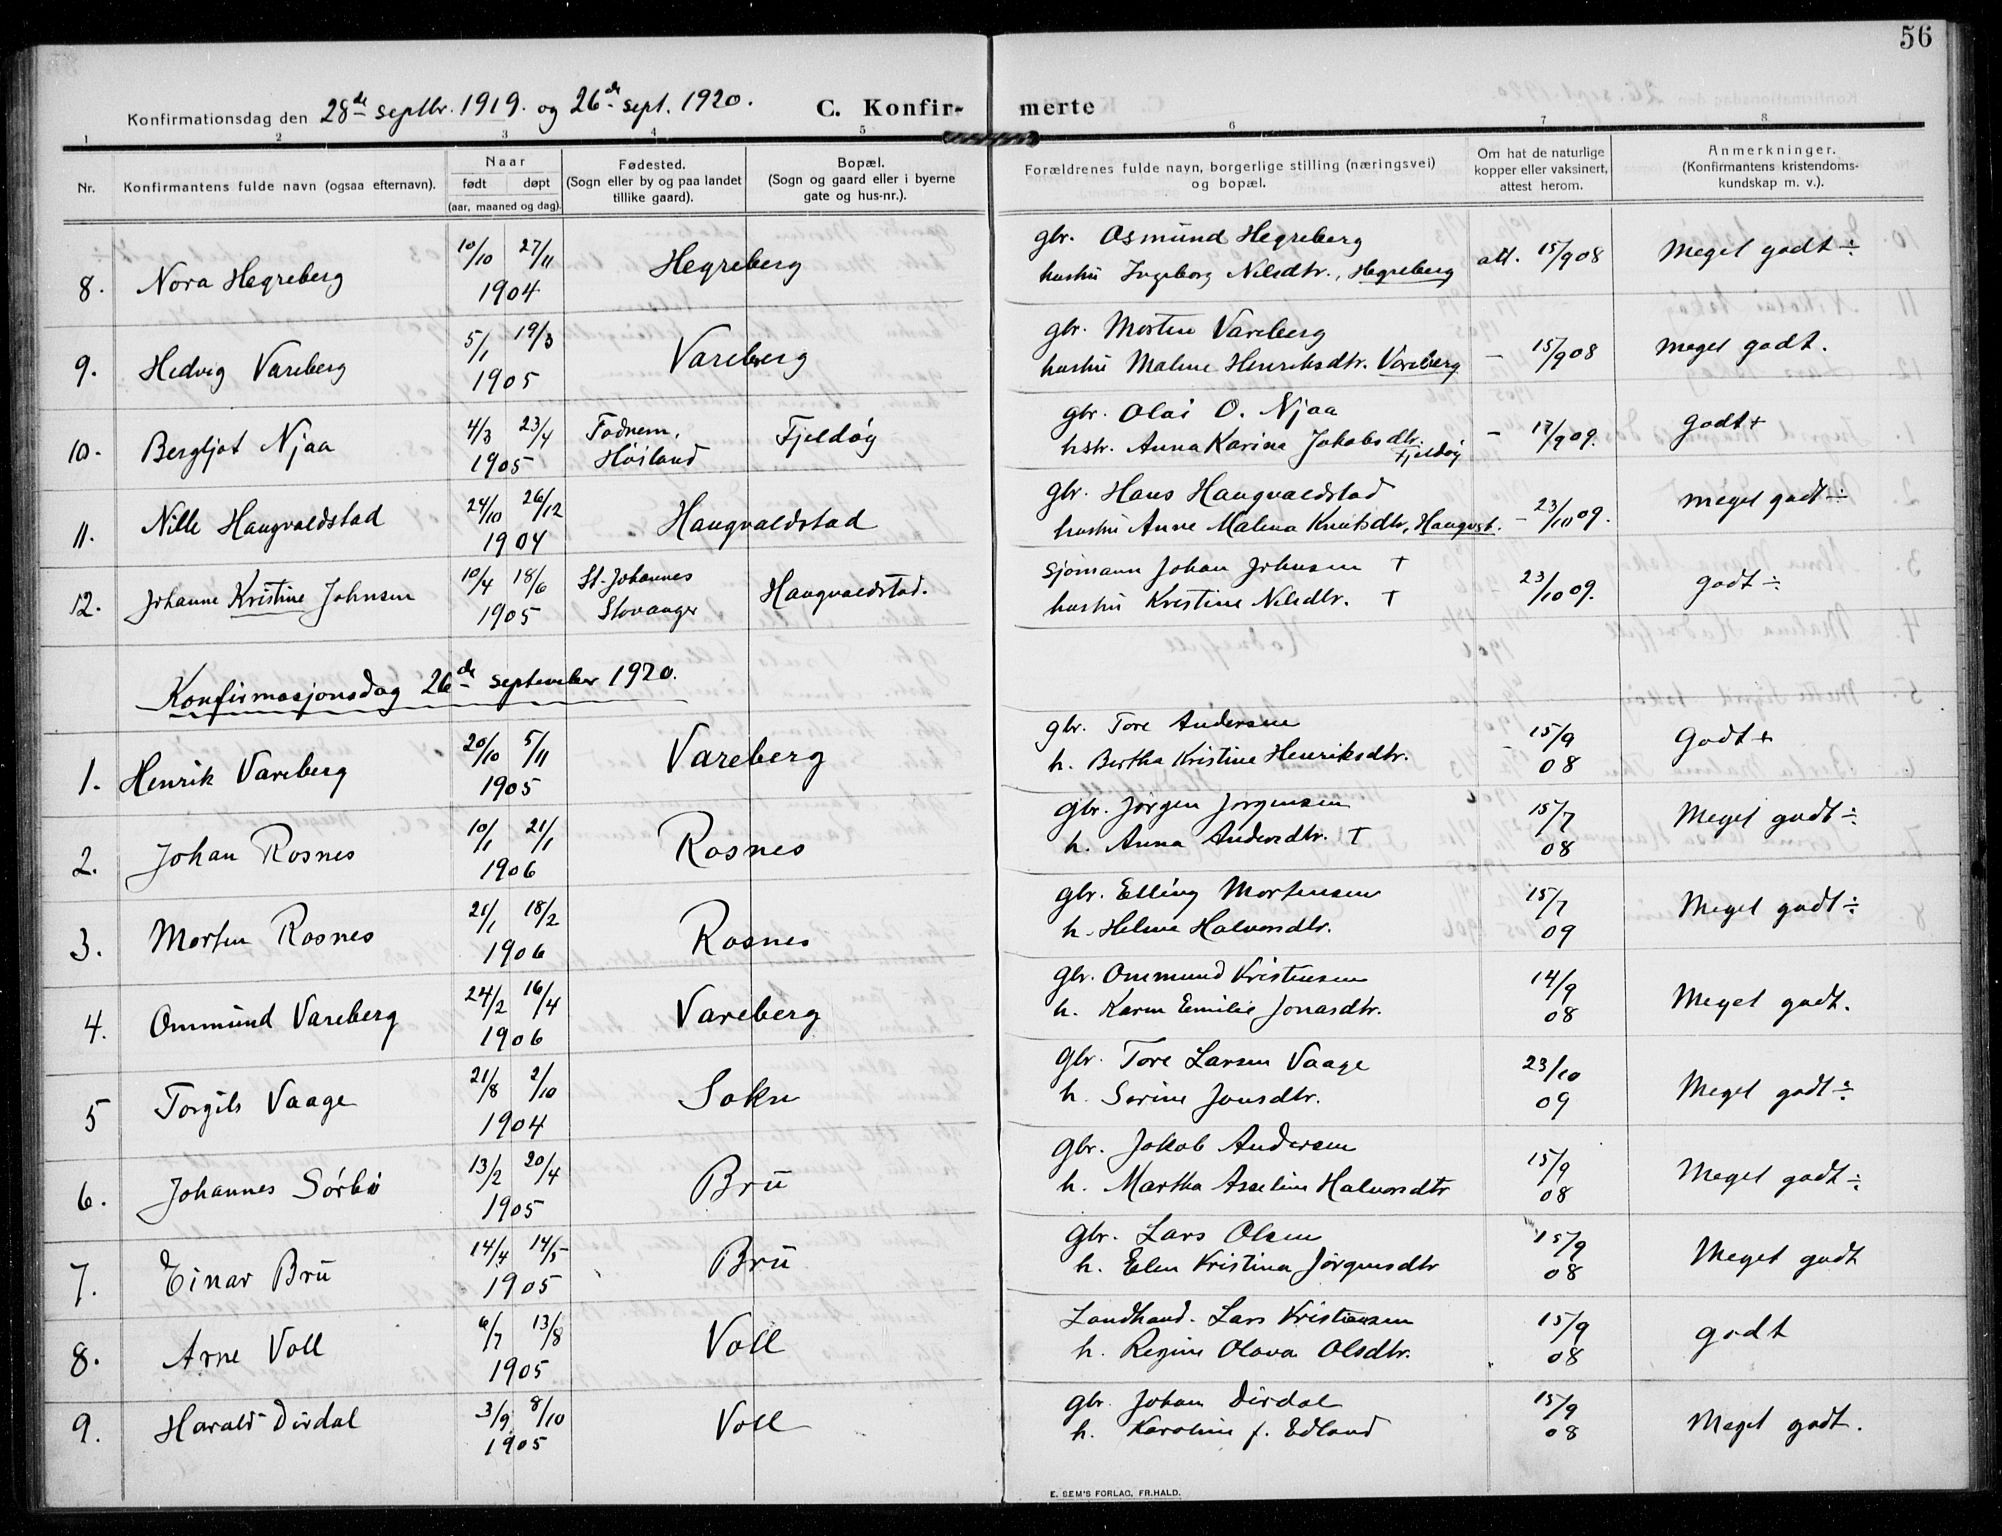 56
Konfirmationsdag den 28de septbr. 1919. og 26de sept. 1920. C. Konfir- merte
1 2 3 4 5 6 7 8
Nr. Konfirmantens fulde navn (ogsaa efternavn). Naar født døpt (aar, maaned og dag). Fødested. (Sogn eller by og paa landet tillike gaard). Bopæl. (Sogn og gaard eller i byerne gate og hus-nr.). Forældrenes fulde navn, borgerlige stilling (næringsvei) og bopæl. Om hat de naturlige kopper eller vaksinert, attest herom. Anmerkninger. (Konfirmantens kristendoms- kundskap m. v.).
8. Nora Hegreberg 10/10 27/11 1904 Hegreberg gbr. Osmund Hegreberg hustru Ingeborg Nilsdtr., Hegreberg att. 15/9 08 Meget godt ÷
9. Hedvig Vareberg 5/1 19/3 1905 Vareberg gbr. Morten Vareberg hustru Malene Henriksdtr. Vareberg – 15/9 08 Meget godt.
10. Bergljot Njaa 4/3 23/4 1905 Todnem, Høiland Fjeldøy gbr. Olai O. Njaa hstr. Anna Karina Jakobsdtr. Fjeldøy – 17/9 09. Godt +
11. Nille Haugvaldstad 24/10 26/12 1904 Haugvaldstad gbr. Hans Haugvaldstad hustru Anne Malena Knutsdtr, Haugvst. – 23/10 09. Meget godt ÷
12. Johanne Kristine Johnsen 10/4 18/6 1905 St. Johannes Stavanger Haugvaldstad. sjømann Johan Johnsen † hustru Kristine Nilsdtr. † 23/10 09. Godt ÷
Konfirmasjonsdag 26de september 1920.
1. Henrik Vareberg 20/10 5/11 1905 Vareberg gbr. Tore Andersen h. Bertha Kristine Henriksdtr. 15/9 08 Godt +
2. Johan Rosnes 10/1 21/1 1906 Rosnes gbr. Jørgen Jørgensen h. Anna Andersdtr. † 15/7 08 Meget godt ÷
3. Morten Rosnes 21/1 18/2 1906 Rosnes gbr. Elling Mortensen h. Helene Halvorsdtr. 15/7 09 Meget godt ÷
4. Ommund Vareberg 24/2 16/4 1906 Vareberg gbr. Ommund Kristensen h. Karen Emilie Jonasdtr. 14/9 08 Meget godt.
5 Torgils Vaage 21/8 2/10 1904 Sokn gbr. Tore Larsen Vaage h. Serine Jonsdtr. 23/10 09 Meget godt ÷
6. Johannes Sørbø 13/2 20/4 1905 Bru gbr. Jakob Andersen h. Martha Asseline Halvorsdtr 15/9 08 Meget godt ÷
7. Einar Bru 14/4 14/5 1905 Bru gbr. Lars Olsen h. Elen Kristina Jørgensdtr 15/9 08 Meget godt
8. Arne Voll 6/7 13/8 1905 Voll Landhand. Lars Kristiansen h. Regine Olava Olsdtr. 15/9 08 godt
9. Harald Dirdal 3/9 8/10 1905 Voll gbr. Johan Dirdal h. Karoline f. Edland 15/9 08 Meget godt.
E. SEM'S FORLAG, FR.HALD.